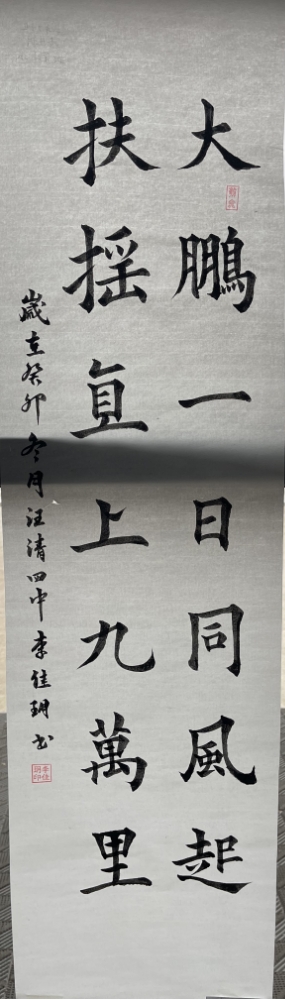 大鵬一日同風起
扶摇直上九萬里
歲在癸卯冬月汪清四中李佳玥书